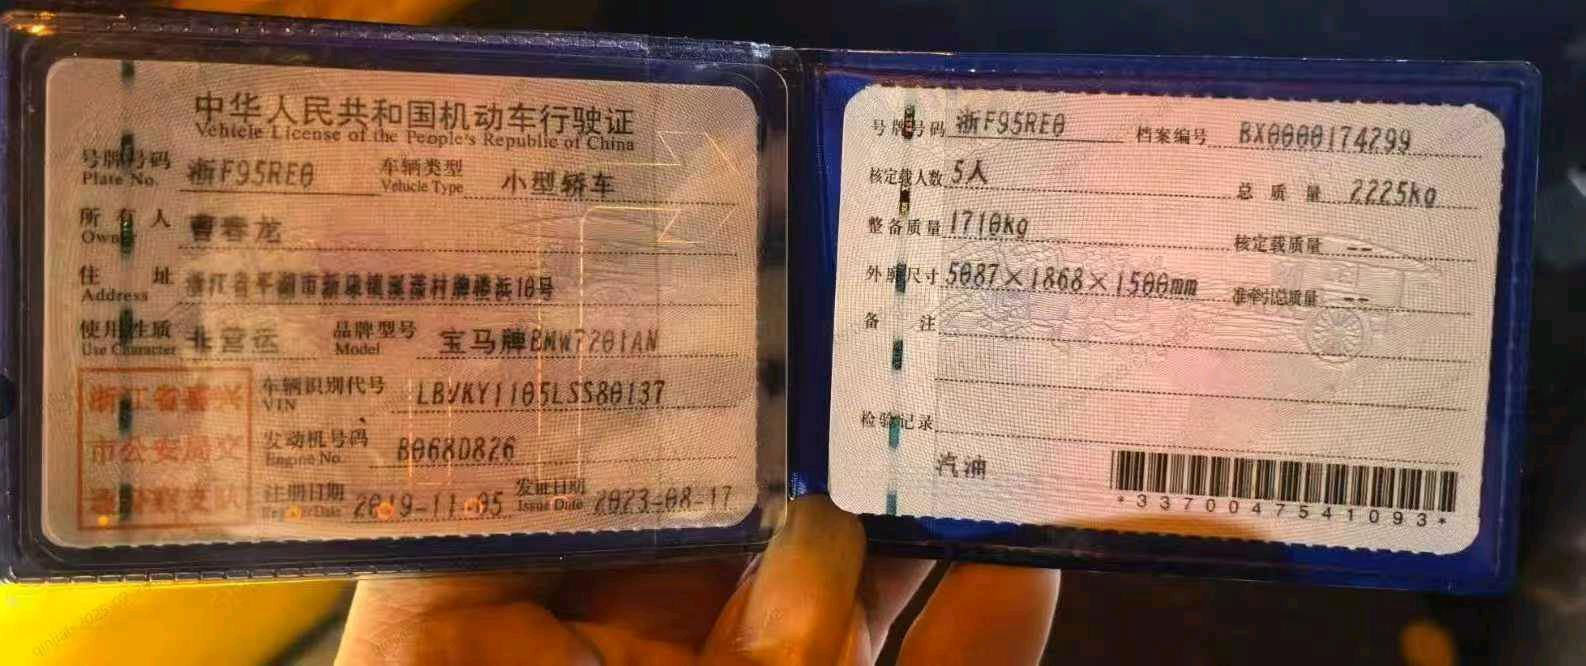 中华人民共和国机动车行驶证
Vehicle License of the People's Republic of China
号牌号码 浙F95RE0 车辆类型 小型轿车
Plate No. Vehicle Type
所有人 曹春龙
Owner
住址 浙江省平湖市新埭镇
Address 村牌楼浜10号
使用性质 非营运 品牌型号 宝马牌BMW7201AN
Use Character Model
车辆识别代号 LBVKY1105LSS80137
VIN
发动机号码 B068D826
Engine No.
注册日期 2019-11-05 发证日期 2023-08-17
Register Date Issue Date
浙江省嘉兴
市公安局交
通警察支队
号牌号码 浙F95RE0 档案编号 BX0000174299
核定载人数 5人 总质量 2225kg
整备质量 1710kg 核定载质量 --
外廓尺寸 5087×1868×1500mm 准牵引总质量 --
备注
检验记录
汽油
*3370047541093*